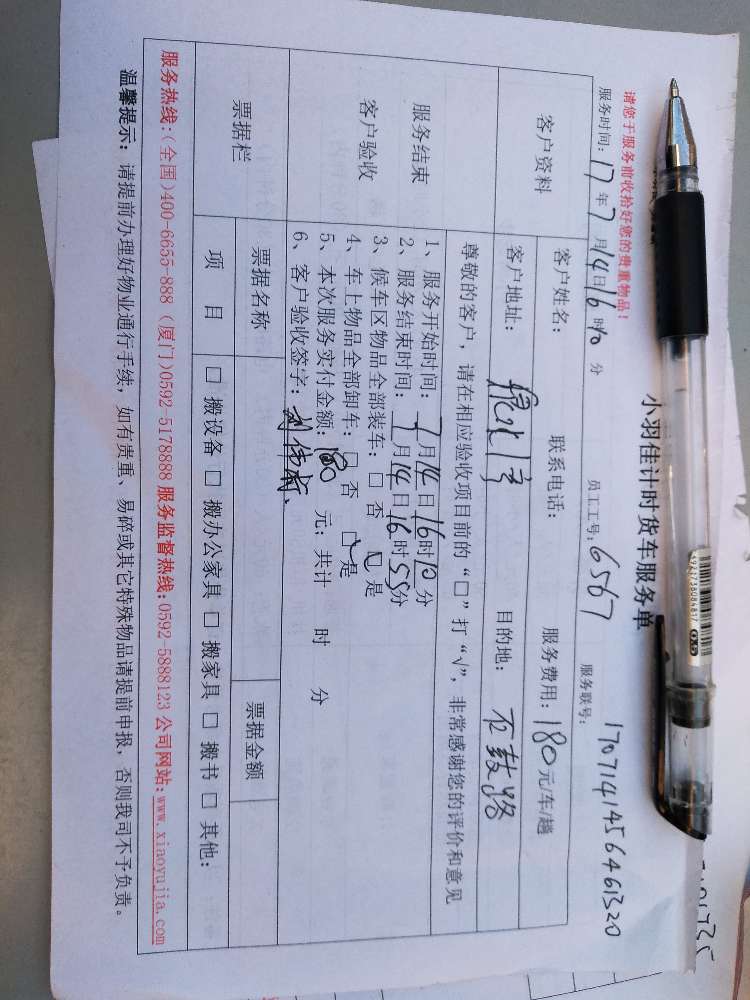 小羽佳计时货车服务单
请您于服务前收拾好您的贵重物品！
服务时间：17年7月14日16时10分 员工工号：6567 服务联号：1707141456461320
客户资料 客户姓名： 联系电话： 服务费用：180元/车/趟
客户地址： 目的地：石鼓路
尊敬的客户，请在相应验收项目前的“□”打“√”，非常感谢您的评价和意见
服务结束
客户验收
1、服务开始时间：7月14日16时10分
2、服务结束时间：7月14日16时55分
3、候车区物品全部装车：□ 否 ☑ 是
4、车上物品全部卸车：□ 否 ☑ 是
5、本次服务实付金额：180 元；共计 时 分
6、客户验收签字：
票据栏 票据名称 票据金额
项 目 □ 搬设备 □ 搬办公家具 □ 搬家具 □ 搬书 □ 其他：
服务热线：(全国)400-6655-888 (厦门)0592-5178888 服务监督热线:0592-5888123 公司网站:www.xiaoyujia.com
温馨提示：请提前办理好物业通行手续，如有贵重、易碎或其它特殊物品请提前申报，否则我司不予负责。
4921738084817